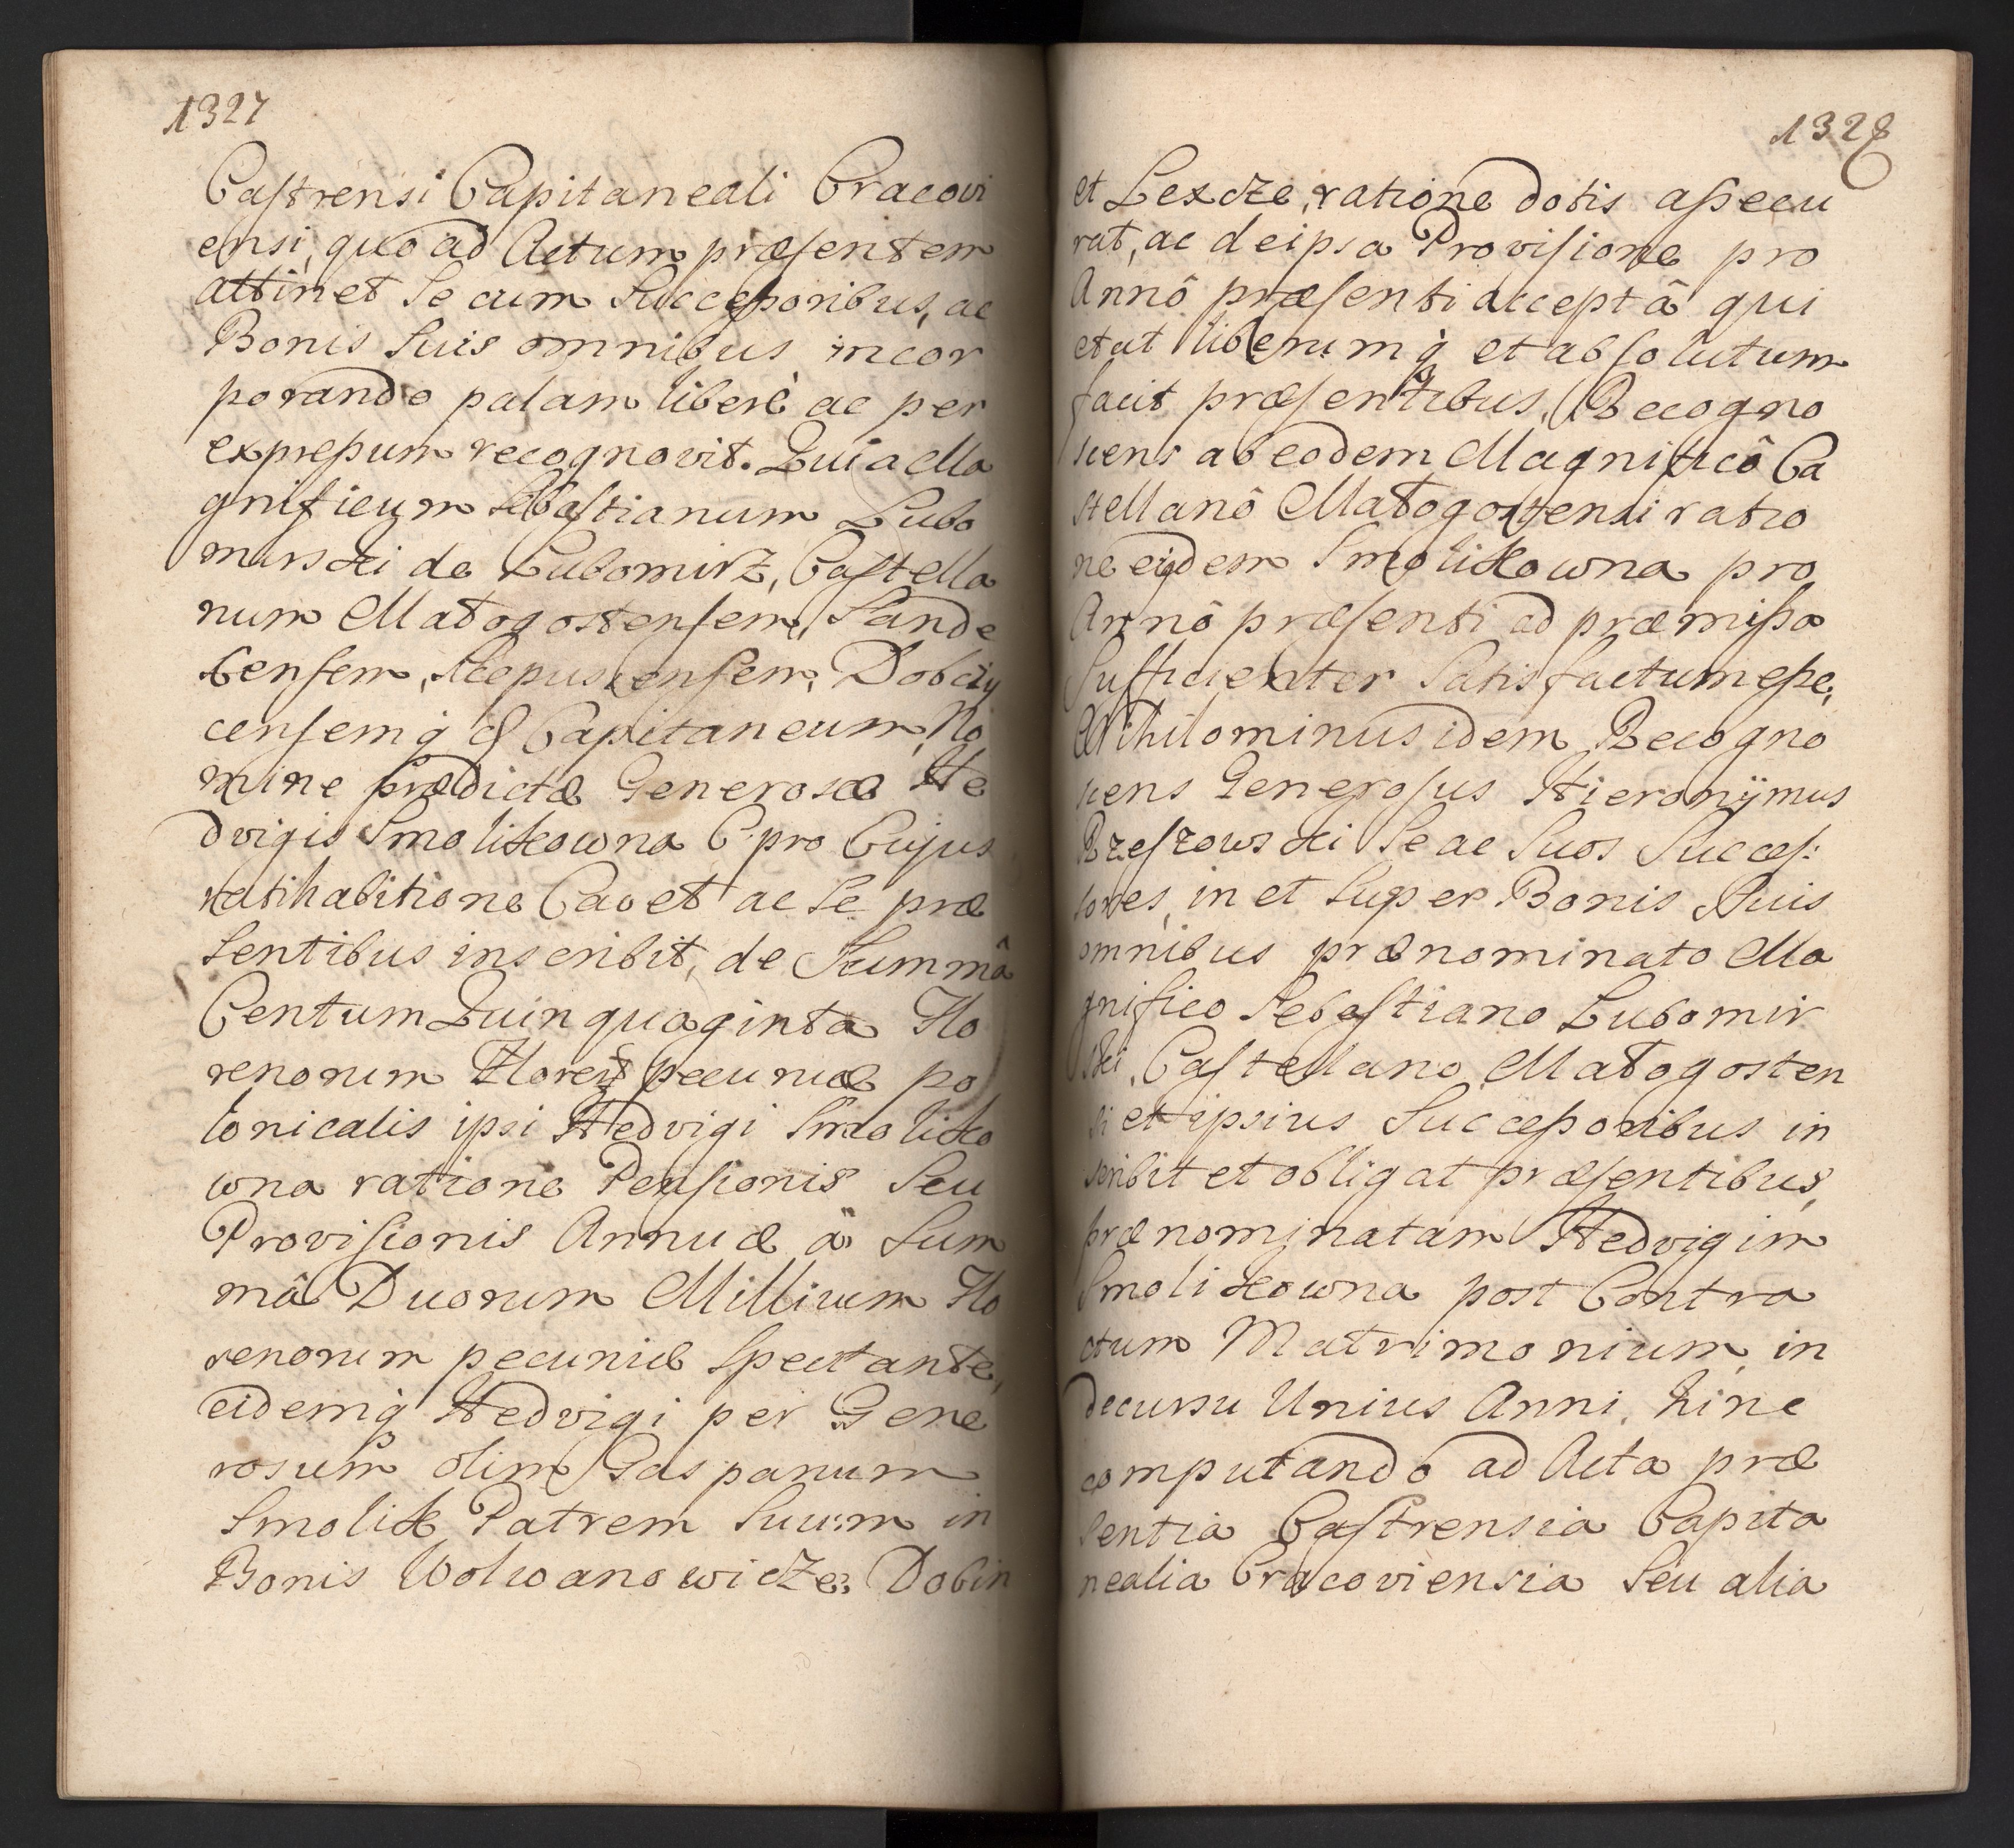 1327
Castrensi Capitaneali Cracovi
ensi, quo ad Actum præsentem
attinet Se cum Successoribus, ac
Bonis Suis omnibus incor
porando palam liberè ac per
expressum recognovit. Quia Ma
gnificum Sebastianum Lubo
mirski de Lubomirz, Castella
num Małogostensem, Sande
censem, Scepusiensem, Dobczy
censemq̃ & Capitaneum, No
mine prædictæ Generosæ He
dvigis Smolikowna C. pro Cujus
ratihabitione Cavet ac Se præ
sentibus inscribit, de Summâ
Centum Quinquaginta Flo
renorum Floreñ pecuniæ po
lonicalis ipsi Hedvigi Smoliko
wna ratione Pensionis Seu
Provisionis Annuæ à Sum
mâ Duorum Millium Flo
renorum pecuniæ Spectante,
eidemq̃ Hedvigi per Gene
rosum olim Gasparum
Smolik Patrem Suum in
Bonis Wolwanowicze: Dobin
1328
et Lexcze, ratione dotis assecu
rat, ac de ipsa Provisione pro
Annô præsenti acceptâ qui
etat liberumq̃ et absolutum
facit præsentibus, Recogno
scens ab eodem Magnificô Ca
stellanô Małogostensi ratio
ne ejdem Smolikowna pro
Annô præsenti ad præmissa
Sufficienter Satisfactum esse,
Nihilominus idem Recogno
scens Generosus Hieronÿmus
Rzeszowski Se ac Suos Succes:
sores, in et Super Bonis Suis
omnibus prænominato Ma
gnifico Sebastiano Lubomir
ski, Castellano Małogosten
si et ipsius Successoribus in
scribit et obligat præsentibus,
prænominatam Hedvigim
Smolikowna post Contra
ctum Matrimonium, in
decursu Unius Anni, hinc
computando ad Acta præ
sentia Castrensia Capita
nealia Cracoviensia Seu alia